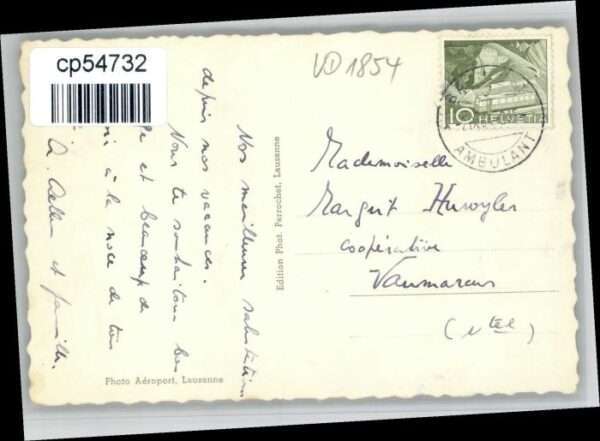 cp54732
VD 1854
10 HELVETIA
AMBULANT
Nos meilleures salutations
depuis nos vacances.
Nous te souhaitons bon
et beaucoup de
à la noce de ton
et famille.
Edition Phot. Perrochet, Lausanne
Mademoiselle
Margrit Huwyler
coopérative
Vaumarcus
(Ntel)
Photo Aéroport, Lausanne